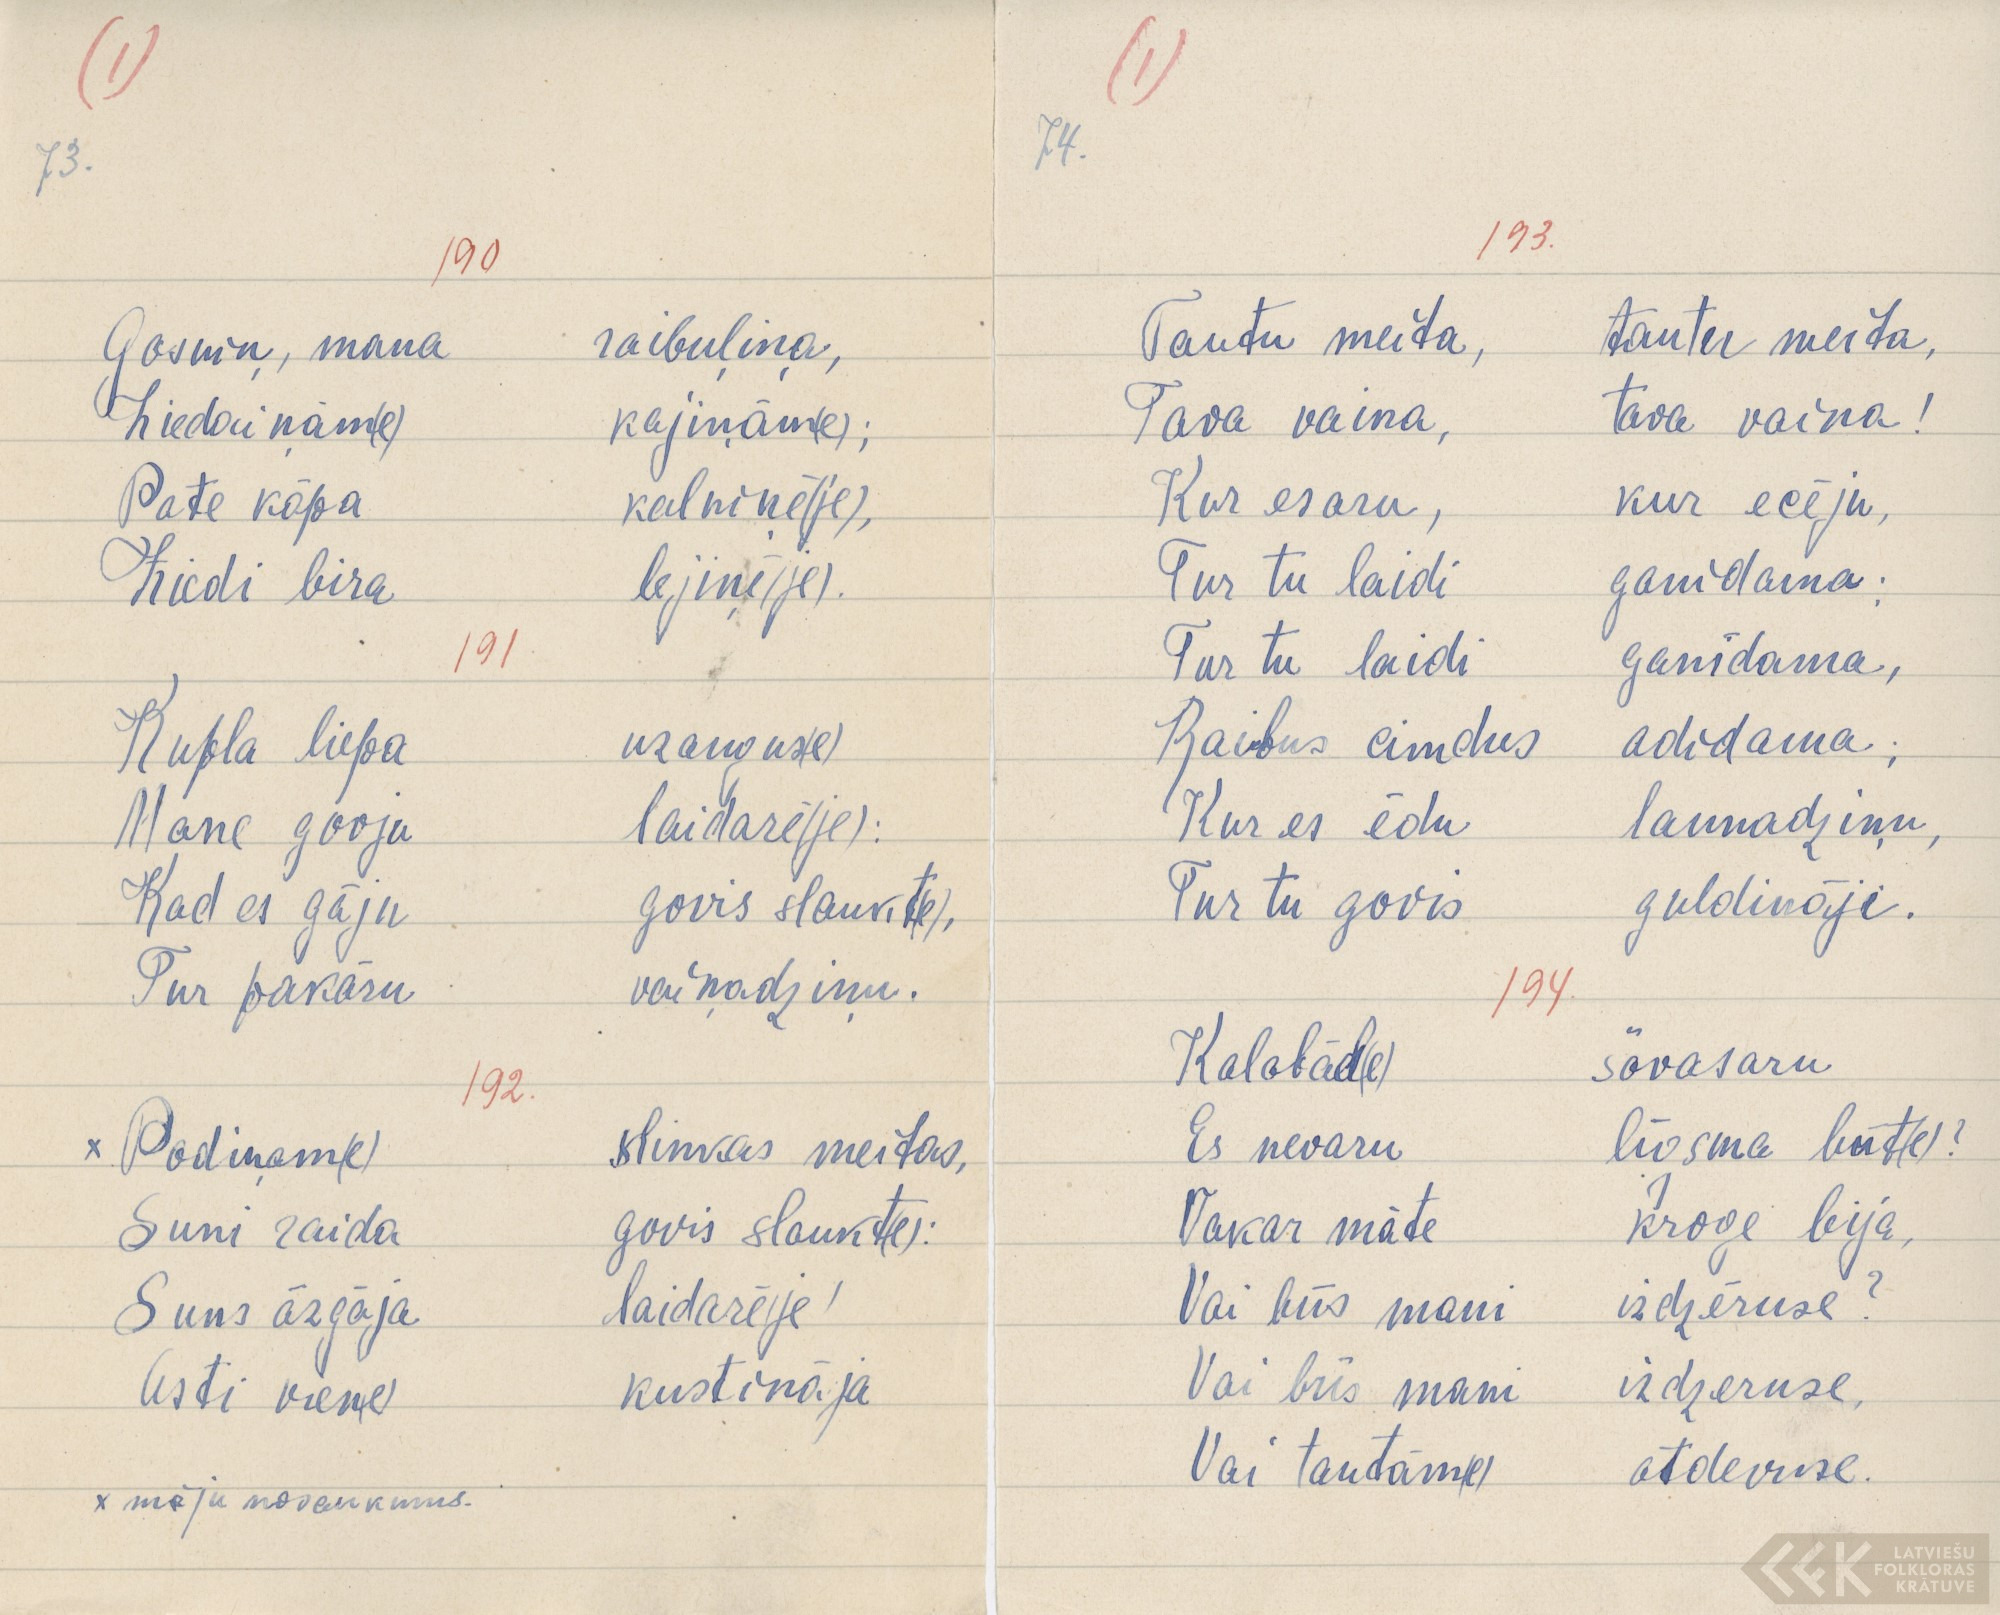 (1)
73.
190
Gosniņ, mana raibuļiņa,
Ziedaiņām(e) kājiņām(e);
Pate kāpa kalniņē(je),
Ziedi bira lejiņē(je).
191
Kupla liepa uzauguse(e)
Mane govju laidarē(je):
Kad es gāju govis slaukt(e),
Tur pakāru vaiņadziņu.
192.
x Podiņam(e) slinkas meitas,
Suni raida govis slaukt(e):
Suns āzgāja laidarē(je!
Asti vien(e) kustināja
x māju nosaukums.
(1)
74.
193.
Tautu meita, tautu meita,
Tava vaina, tava vaina!
Kur es aru, kur ecēju,
Tur tu laidi ganīdama;
Tur tu laidi ganīdama,
Raibus cimdus adīdama;
Kur es ēdu launadziņu,
Tur tu govis guldināji.
194.
Kalabād(e) šövasaru
Es nevaru līgsma būt(e)?
Vakar māte krogē bija,
Vai būs mani izdzēruse?
Vai būs mani izdzeruse,
Vai tautām(e) atdevuse.
LATVIEŠU
FOLKLORAS
KRĀTUVE